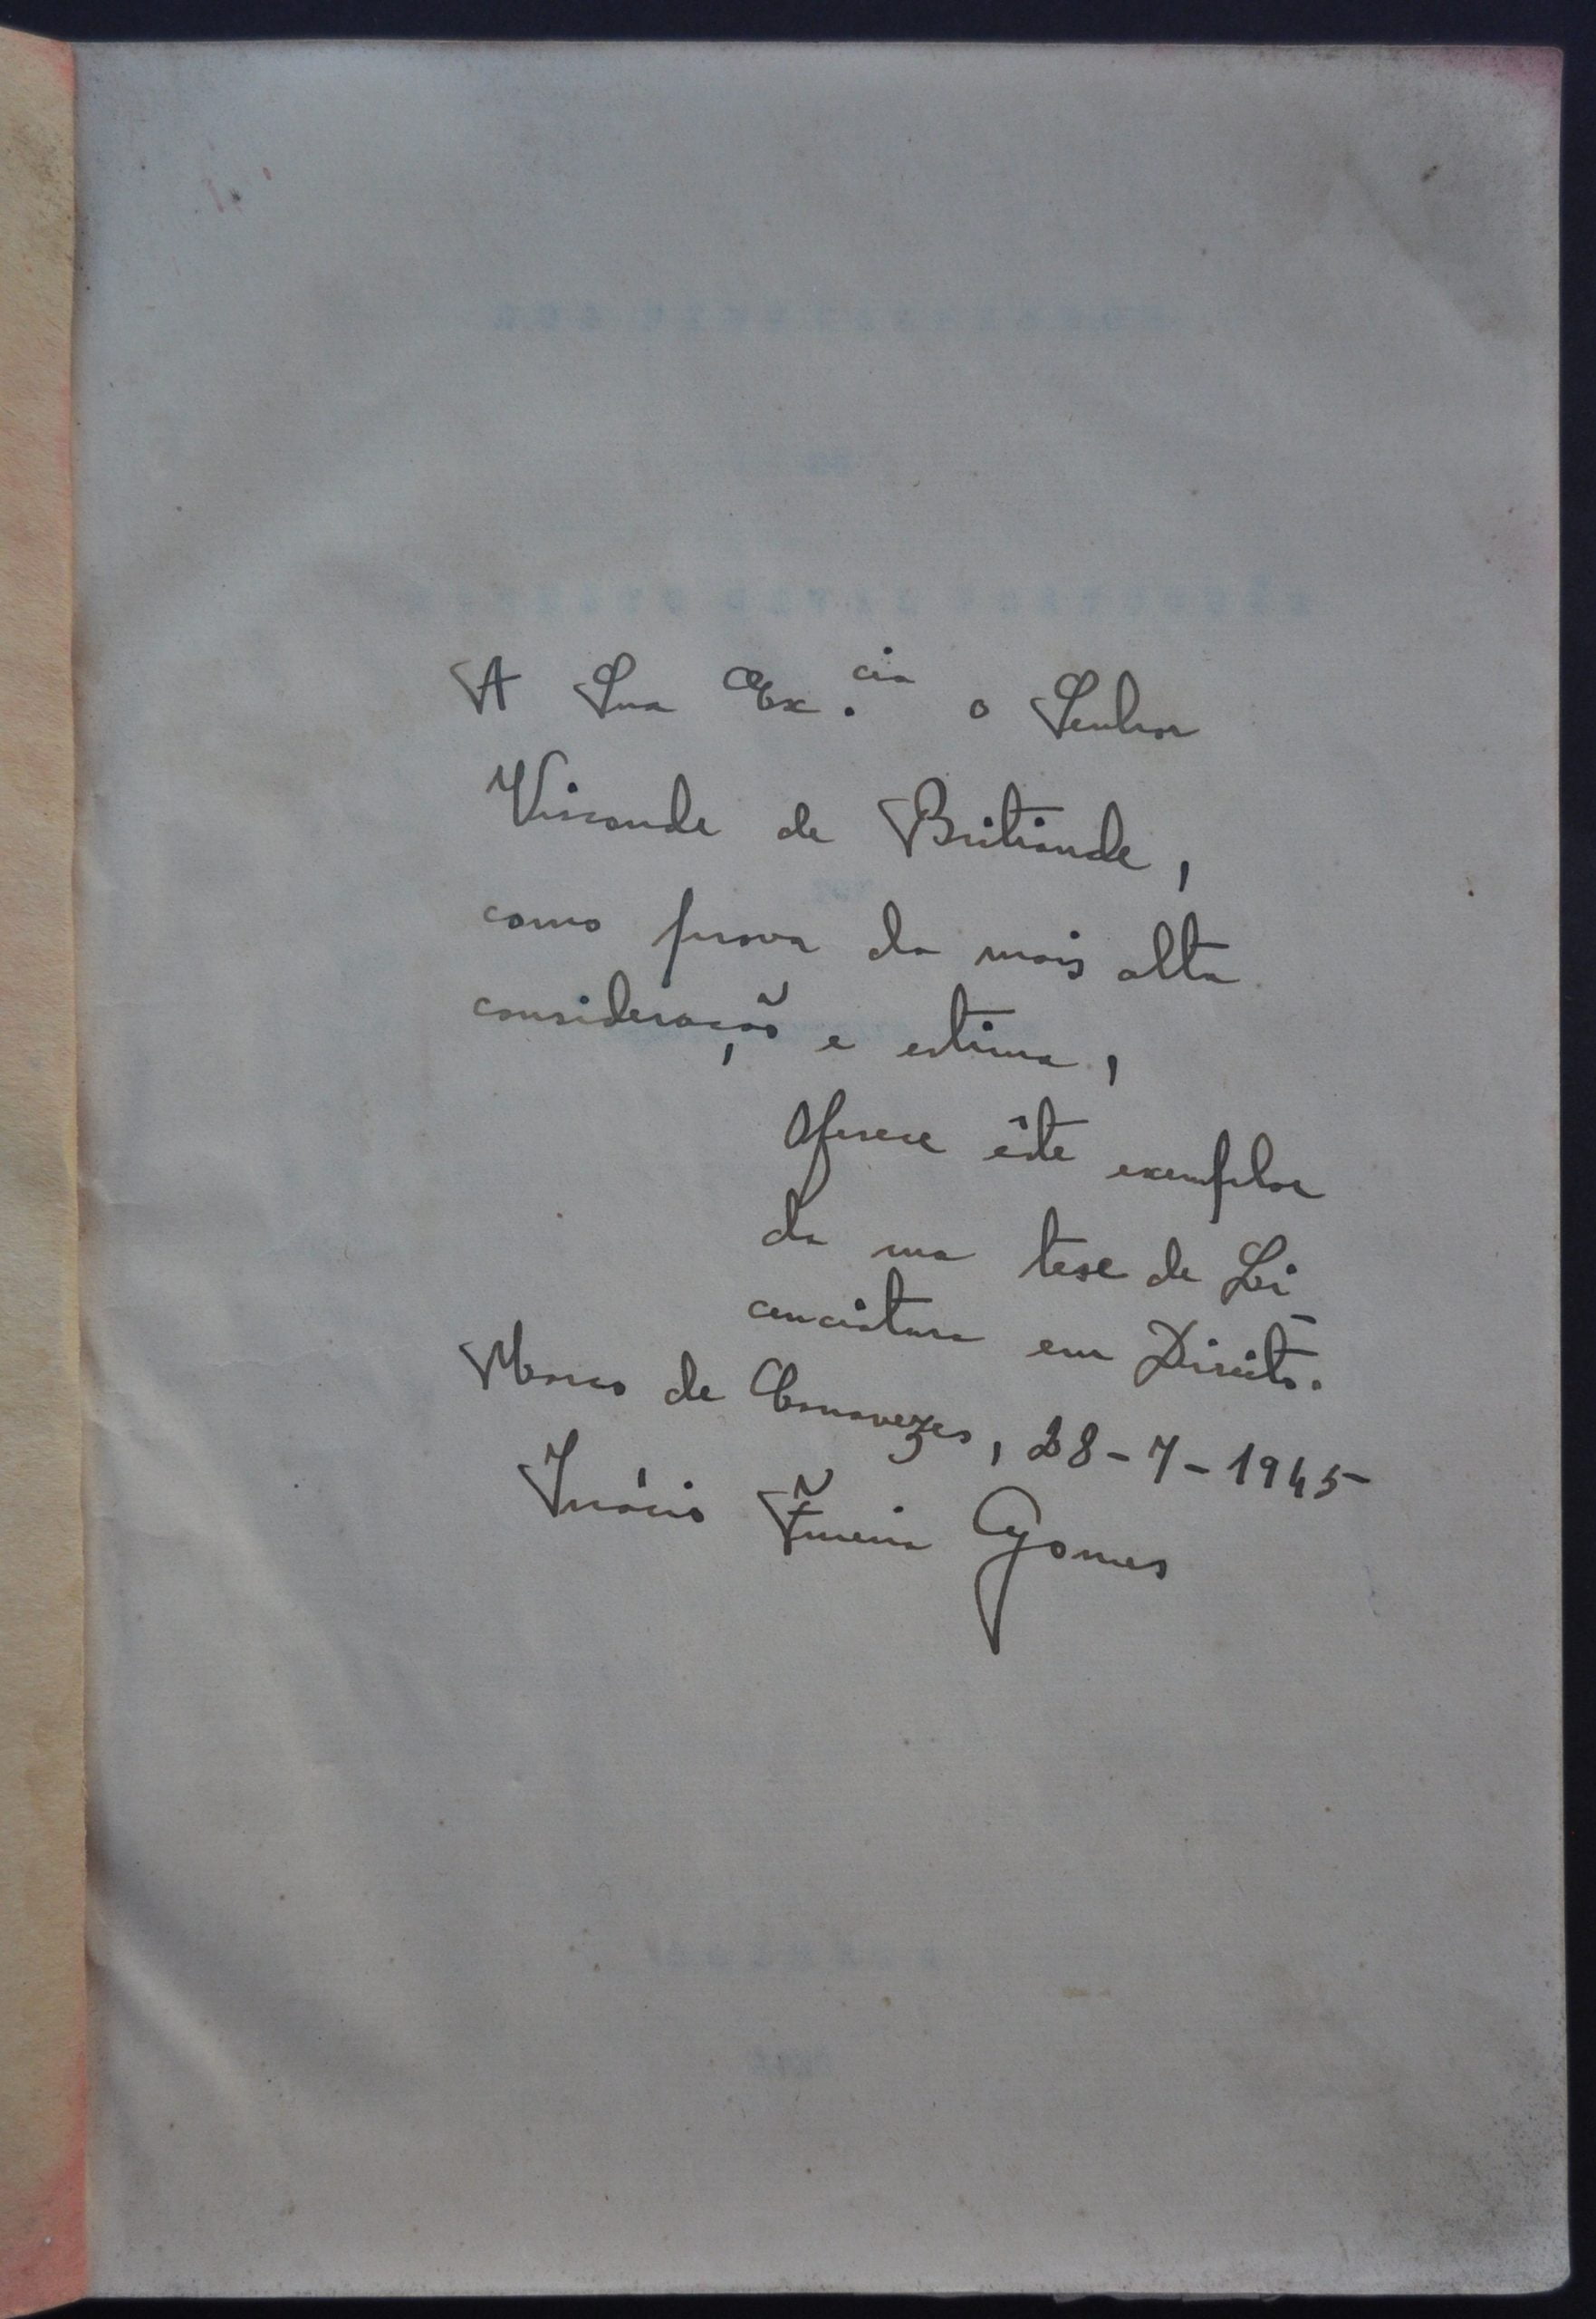 A Sua Ex.cia o Senhor
Visconde de Britiande,
como prova da mais alta
consideração e estima,
oferece êste exemplar
da sua tese de Li-
cenciatura em Direito.
Marco de Canavezes, 28-7-1945
Inácio Gomes